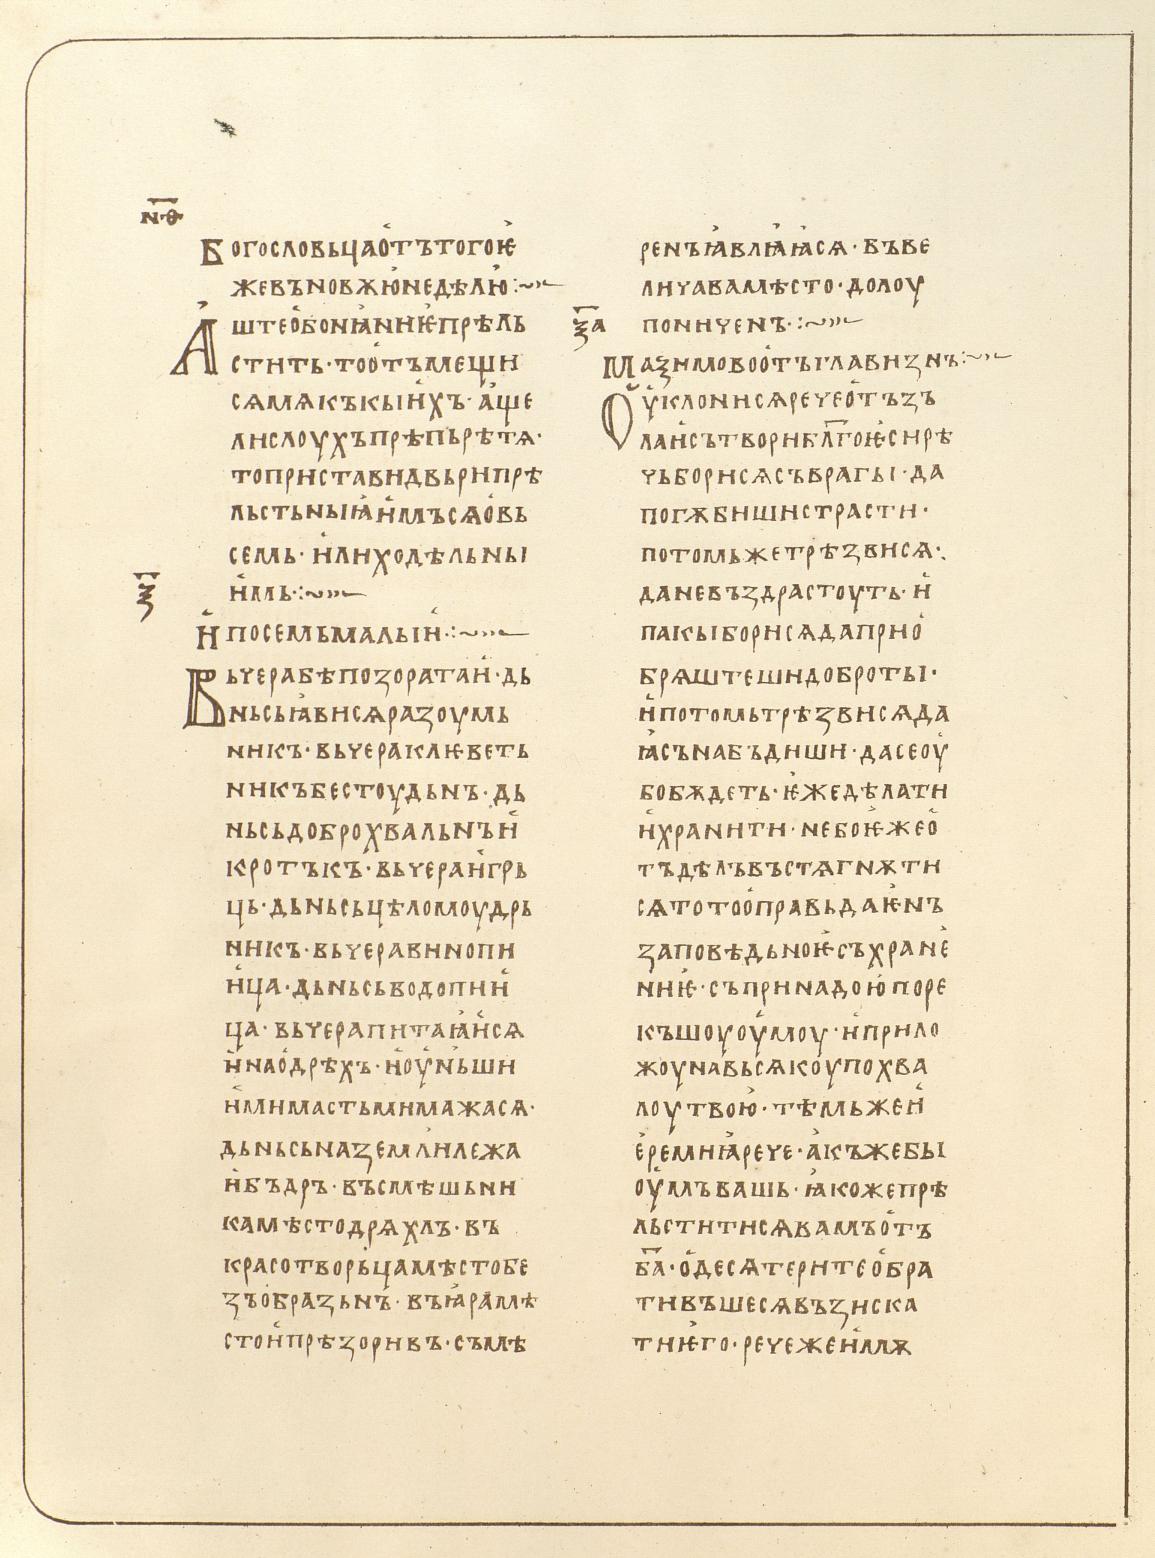 н҃ѳ
Богословьцаотътогоѥ
жевъновѫюнедѣлю:~
Аштеобониꙗниѥпрѣль
стить·тоотъмещи
сѧмѧкъкыихъ·аще
лислоухъпрѣпьрѣтѧ·
топриставидвьрипрѣ
льстьныꙗимъсѧовь
семь·илиходѣльны
имь·:~
ѯ҃
Ипосемьмалыи·:~
Вьчерабѣпозоратаи·дь
ньсьꙗвисѧразоумь
никъ·вьчераклѥветь
никъбестоудьнъ·дь
ньсьдоброхвальнъи
кротъкъ·вьчераигрь
ць·дьньсьцѣломоудрь
никъ·вьчеравинопи
ица·дьньсьводопии
ца·вьчерапитаꙗисѧ
инаодрѣхъ·иоуньши
имимастьмимажасѧ·
дьньсьназемлилежа
ибъдръ·въсмѣшьни
камѣстодрѧхлъ·въ
красотворьцамѣстобе
зъобразьнъ·въꙗрамѣ
стоипрѣзоривъ·съмѣ
ренъꙗвлꙗꙗсѧ·въве
личавамѣсто·долоу
пониченъ·:~
ѯ҃а
Мазимовоотъглавизнъ:~
Оуклонисѧречеотъзъ
лаисътвориблг҃оѥсирѣ
чьборисѧсъврагы·да
погѫбишистрасти·
потомьжетрѣзвисѧ·
даневъздрастоуть·и
пакыборисѧдаприо
брѧштешидоброты·
ипотомьтрѣзвисѧда
ꙗсънабъдиши·дасеоу
бобѫдеть·ѥжедѣлати
ихранити·небоѥжео
тъдѣлъвъстѧгнѫти
сѧтотооправьдаѥнъ
заповѣдьноѥсъхране
ниѥ·съпринадоюпоре
къшоуоумоу·иприло
жоунавьсѧкоупохва
лоутвою·тѣмьжеи
еремиꙗрече·акъжебы
оумъвашь·ꙗкожепрѣ
льститисѧвамъотъ
б҃а·одесѧтеритеобра
тивъшесѧвъзиска
тиѥго·речежеимѫ